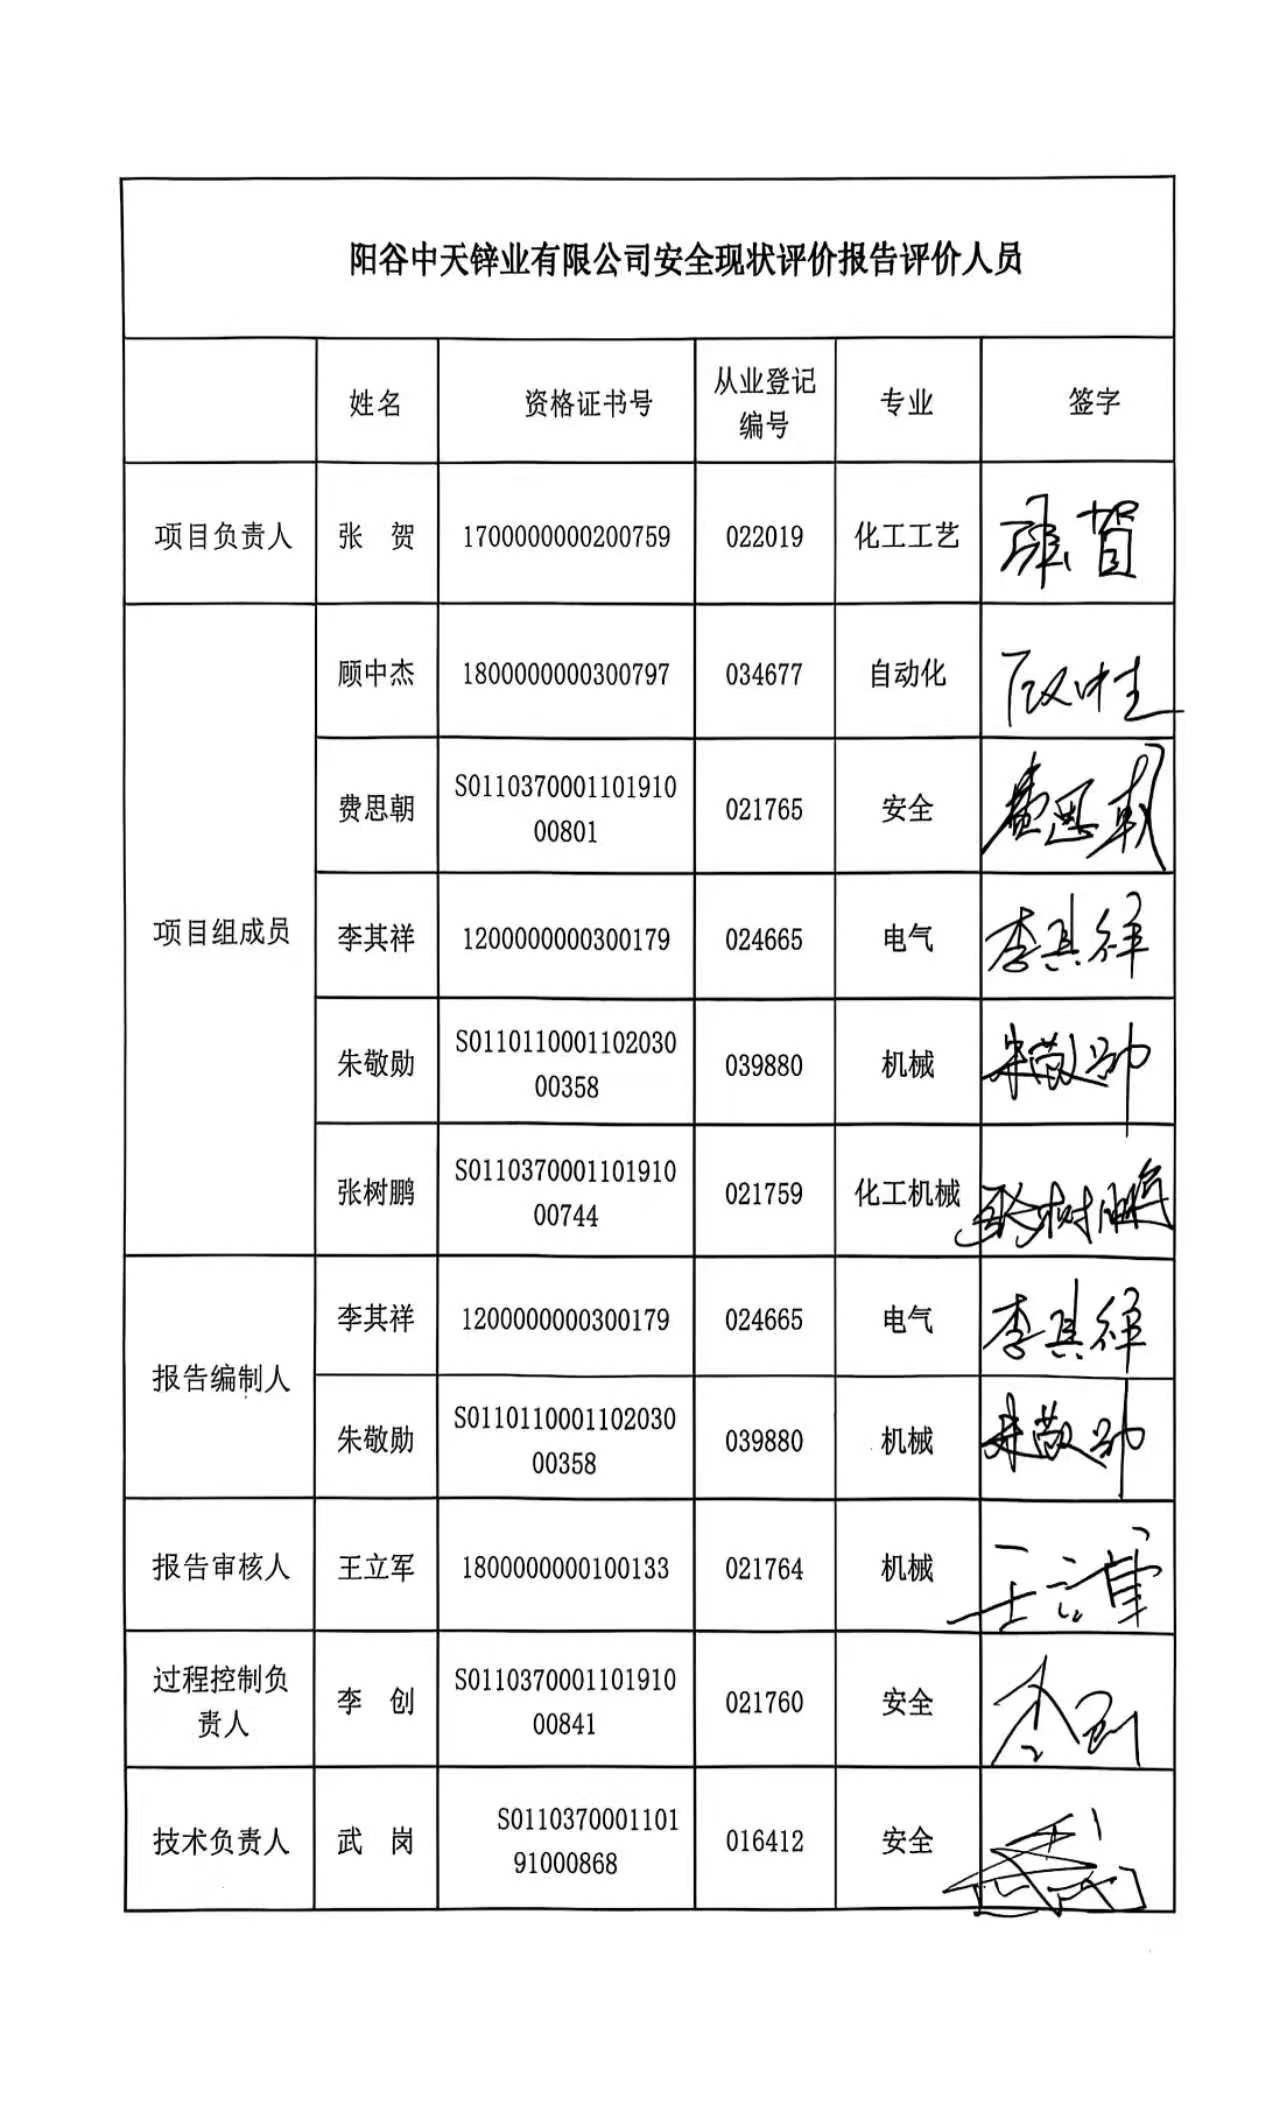 阳谷中天锌业有限公司安全现状评价报告评价人员
姓名 资格证书号 从业登记编号 专业 签字
项目负责人 张 贺 1700000000200759 022019 化工工艺 张贺
项目组成员 顾中杰 1800000000300797 034677 自动化 顾中杰
费思朝 S011037000110191000801 021765 安全 费思朝
李其祥 1200000000300179 024665 电气 李其祥
朱敬勋 S011011000110203000358 039880 机械 朱敬勋
张树鹏 S011037000110191000744 021759 化工机械 张树鹏
报告编制人 李其祥 1200000000300179 024665 电气 李其祥
朱敬勋 S011011000110203000358 039880 机械 朱敬勋
报告审核人 王立军 1800000000100133 021764 机械 王立军
过程控制负责人 李 创 S011037000110191000841 021760 安全 李创
技术负责人 武 岗 S011037000110191000868 016412 安全